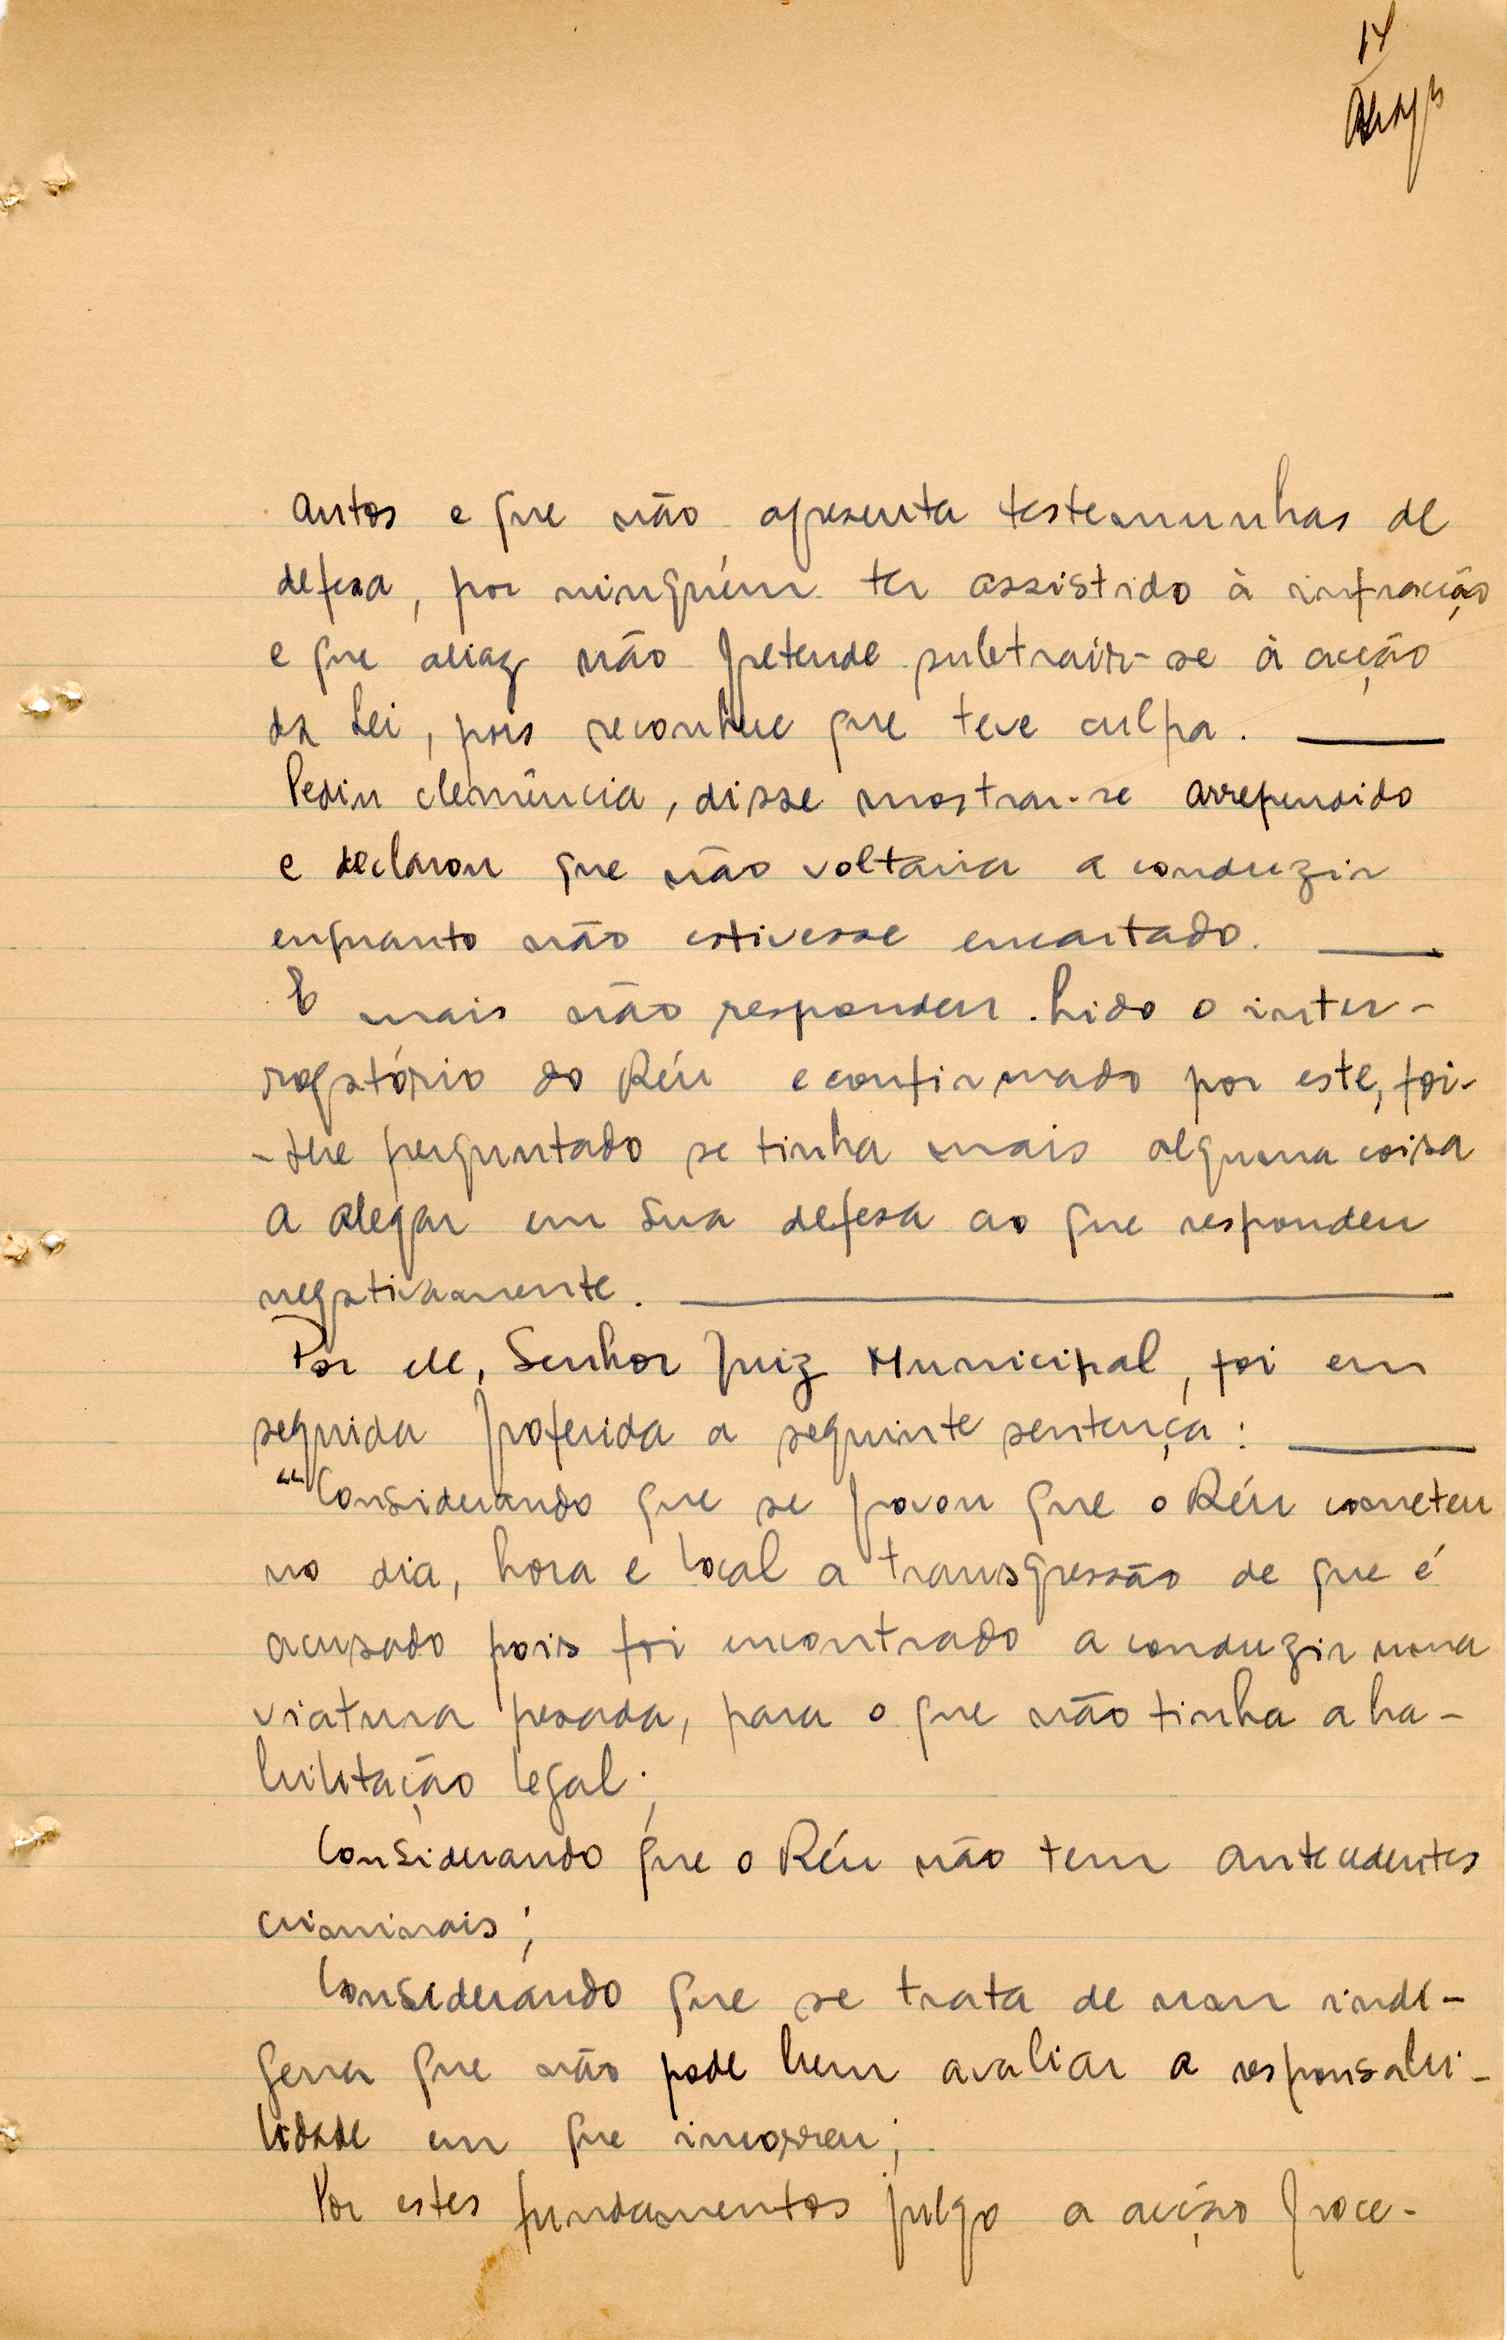 14
autos e que não apresenta testemunhas de
defesa, por ninguém ter assistido à infracção
e que aliaz não pretende subtrair-se à acção
da Lei, pois reconhece que teve culpa.
Pediu clemência, disse mostrar-se arrependido
e declarou que não voltaria a conduzir
enquanto não estivesse encartado.
E mais não respondeu. Lido o inter-
rogatório do Réu e confirmado por este, foi-
-lhe perguntado se tinha mais alguma coisa
a alegar em sua defesa ao que respondeu
negativamente.
Por ele, Senhor Juiz Municipal, foi em
seguida proferida a seguinte sentença:
""Considerando que se provou que o Réu cometeu
no dia, hora e local a transgressão de que é
acusado pois foi encontrado a conduzir uma
viatura pesada, para o que não tinha a ha-
bilitação legal;
Considerando que o Réu não tem antecedentes
criminais;
Considerando que se trata de um indí-
gena que não pode bem avaliar a responsabi-
lidade em que incorreu;
Por estes fundamentos julgo a acção proce-